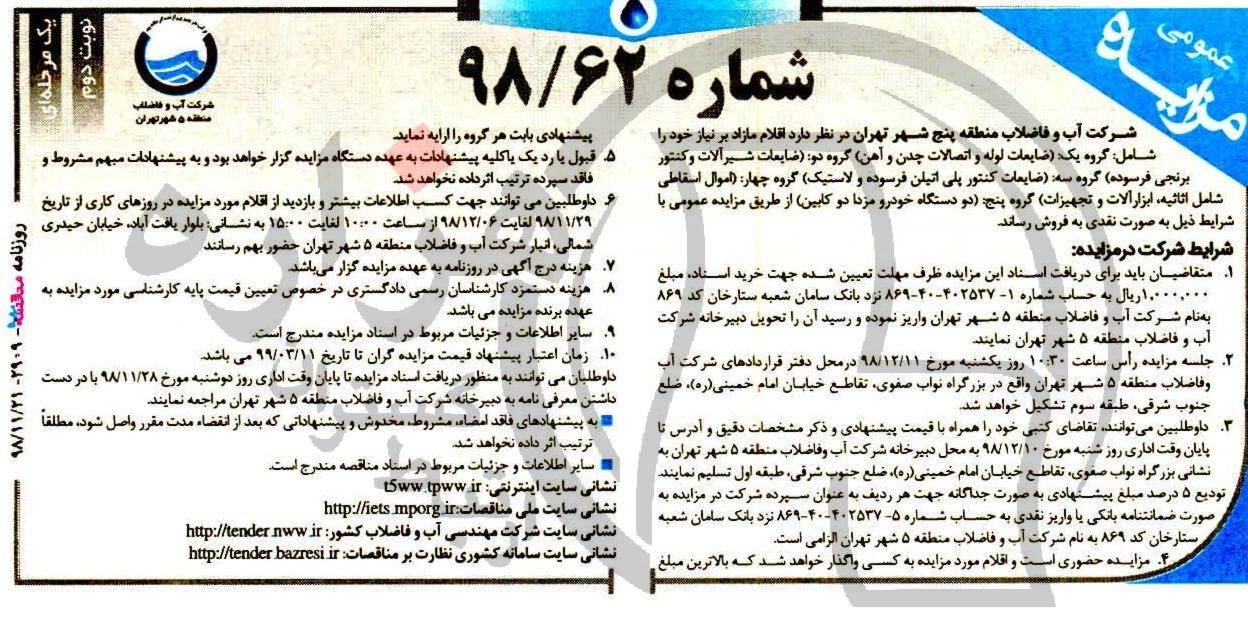 مزایده
عمومی
شماره ۹۸/۶۲
یک مرحله‌ای
نوبت دوم
شرکت آب و فاضلاب
منطقه ۵ شهر تهران
شرکت آب و فاضلاب منطقه پنج شهر تهران در نظر دارد اقلام مازاد بر نیاز خود را
شامل: گروه یک: (ضایعات لوله و اتصالات چدن و آهن) گروه دو: (ضایعات شیرآلات وکنتور
برنجی فرسوده) گروه سه: (ضایعات کنتور پلی اتیلن فرسوده و لاستیک) گروه چهار: (اموال اسقاطی
شامل اثاثیه، ابزارآلات و تجهیزات) گروه پنج: (دو دستگاه خودرو مزدا دو کابین) از طریق مزایده عمومی با
شرایط ذیل به صورت نقدی به فروش رساند.
شرایط شرکت درمزایده:
۱. متقاضیان باید برای دریافت اسناد این مزایده ظرف مهلت تعیین شده جهت خرید اسناد، مبلغ
۱,۰۰۰,۰۰۰ریال به حساب شماره ۱- ۴۰۲۵۳۷-۴۰-۸۶۹ نزد بانک سامان شعبه ستارخان کد ۸۶۹
به‌نام شرکت آب و فاضلاب منطقه ۵ شهر تهران واریز نموده و رسید آن را تحویل دبیرخانه شرکت
آب و فاضلاب منطقه ۵ شهر تهران نمایند.
۲. جلسه مزایده رأس ساعت ۱۰:۳۰ روز یکشنبه مورخ ۹۸/۱۲/۱۱ درمحل دفتر قراردادهای شرکت آب
وفاضلاب منطقه ۵ شهر تهران واقع در بزرگراه نواب صفوی، تقاطع خیابان امام خمینی(ره)، ضلع
جنوب شرقی، طبقه سوم تشکیل خواهد شد.
۳. داوطلبین می‌توانند، تقاضای کتبی خود را همراه با قیمت پیشنهادی و ذکر مشخصات دقیق و آدرس تا
پایان وقت اداری روز شنبه مورخ ۹۸/۱۲/۱۰ به محل دبیرخانه شرکت آب وفاضلاب منطقه ۵ شهر تهران به
نشانی بزرگراه نواب صفوی، تقاطع خیابان امام خمینی(ره)، ضلع جنوب شرقی، طبقه اول تسلیم نمایند.
تودیع ۵ درصد مبلغ پیشنهادی به صورت جداگانه جهت هر ردیف به عنوان سپرده شرکت در مزایده به
صورت ضمانتنامه بانکی یا واریز نقدی به حساب شماره ۵- ۴۰۲۵۳۷-۴۰-۸۶۹ نزد بانک سامان شعبه
ستارخان کد ۸۶۹ به نام شرکت آب و فاضلاب منطقه ۵ شهر تهران الزامی است.
۴. مزایده حضوری است و اقلام مورد مزایده به کسی واگذار خواهد شد که بالاترین مبلغ
پیشنهادی بابت هر گروه را ارایه نماید.
۵. قبول یا رد یک یاکلیه پیشنهادات به عهده دستگاه مزایده گزار خواهد بود و به پیشنهادات مبهم مشروط و
فاقد سپرده ترتیب اثرداده نخواهد شد.
۶. داوطلبین می توانند جهت کسب اطلاعات بیشتر و بازدید از اقلام مورد مزایده در روزهای کاری از تاریخ
۹۸/۱۱/۲۹ لغایت ۹۸/۱۲/۰۶ از ساعت ۱۰:۰۰ لغایت ۱۵:۰۰ به نشانی: بلوار یافت آباد، خیابان حیدری
شمالی، انبار شرکت آب و فاضلاب منطقه ۵ شهر تهران حضور بهم رسانند
۷. هزینه درج آگهی در روزنامه به عهده مزایده گزار می‌باشد.
۸. هزینه دستمزد کارشناسان رسمی دادگستری در خصوص تعیین قیمت پایه کارشناسی مورد مزایده به
عهده برنده مزایده می باشد.
۹. سایر اطلاعات و جزئیات مربوط در اسناد مزایده مندرج است.
۱۰. زمان اعتبار پیشنهاد قیمت مزایده گران تا تاریخ ۹۹/۰۳/۱۱ می باشد.
داوطلبان می توانند به منظور دریافت اسناد مزایده تا پایان وقت اداری روز دوشنبه مورخ ۹۸/۱۱/۲۸ با در دست
داشتن معرفی نامه به دبیرخانه شرکت آب و فاضلاب منطقه ۵ شهر تهران مراجعه نمایند.
به پیشنهادهای فاقد امضاء، مشروط، مخدوش و پیشنهاداتی که بعد از انقضاء مدت مقرر واصل شود، مطلقاً
ترتیب اثر داده نخواهد شد.
سایر اطلاعات و جزئیات مربوط در اسناد مناقصه مندرج است.
نشانی سایت اینترنتی: t5ww.tpww.ir
نشانی سایت ملی مناقصات: http://iets.mporg.ir
نشانی سایت شرکت مهندسی آب و فاضلاب کشور: http://tender.nww.ir
نشانی سایت سامانه کشوری نظارت بر مناقصات: http://tender.bazresi.ir
روزنامه مناقصه - ۲۹۰۹ - ۹۸/۱۱/۲۱